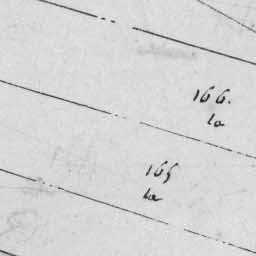 166.
la
165
la